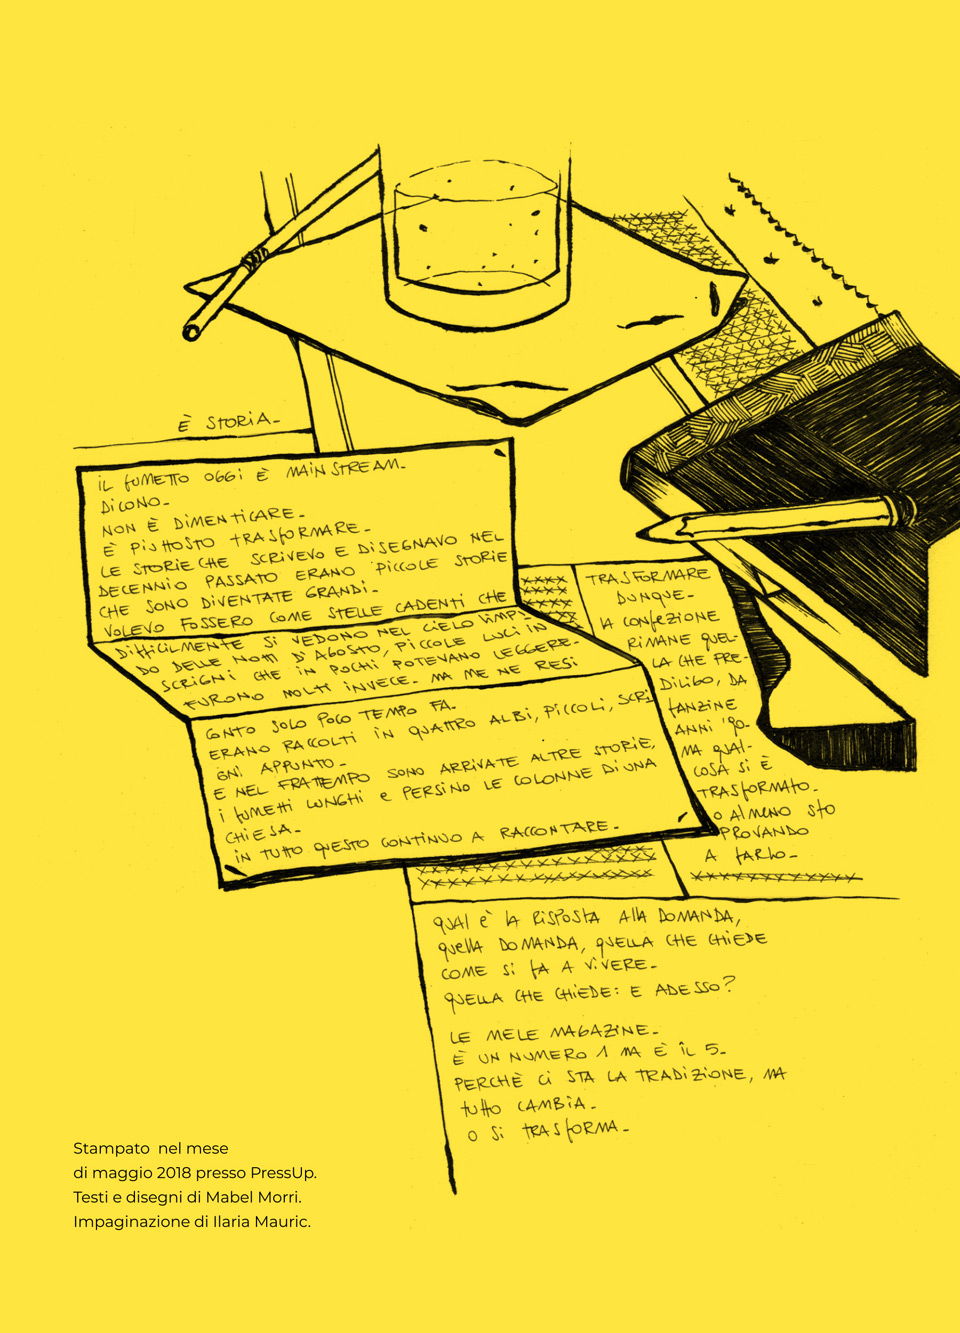 È STORIA_
IL FUMETTO OGGI È MAINSTREAM_
DICONO_
NON È DIMENTICARE_
È PIUTTOSTO TRASFORMARE_
LE STORIE CHE SCRIVEVO E DISEGNAVO NEL
DECENNIO PASSATO ERANO PICCOLE STORIE
CHE SONO DIVENTATE GRANDI_
VOLEVO FOSSERO COME STELLE CADENTI CHE
DIFFICILMENTE SI VEDONO NEL CIELO LIMPI-
DO DELLE NOTTI D'AGOSTO, PICCOLE LUCI IN
SCRIGNI CHE IN POCHI POTEVANO LEGGERE_
FURONO MOLTI INVECE_ MA ME NE RESI
CONTO SOLO POCO TEMPO FA_
ERANO RACCOLTI IN QUATTRO ALBI, PICCOLI, SCRI
GNI APPUNTO_
E NEL FRATTEMPO SONO ARRIVATE ALTRE STORIE,
I FUMETTI LUNGHI E PERSINO LE COLONNE DI UNA
CHIESA_
IN TUTTO QUESTO CONTINUO A RACCONTARE_
TRASFORMARE
DUNQUE_
LA CONFEZIONE
RIMANE QUEL-
LA CHE PRE-
DILIGO, DA
FANZINE
ANNI '90_
MA QUAL-
COSA SI È
TRASFORMATO_
O ALMENO STO
PROVANDO
A FARLO_
QUAL È LA RISPOSTA ALLA DOMANDA,
QUELLA DOMANDA, QUELLA CHE CHIEDE
COME SI FA A VIVERE_
QUELLA CHE CHIEDE: E ADESSO?
LE MELE MAGAZINE_
È UN NUMERO 1 MA È IL 5_
PERCHÈ CI STA LA TRADIZIONE, MA
TUTTO CAMBIA_
O SI TRASFORMA_
Stampato nel mese
di maggio 2018 presso PressUp.
Testi e disegni di Mabel Morri.
Impaginazione di Ilaria Mauric.